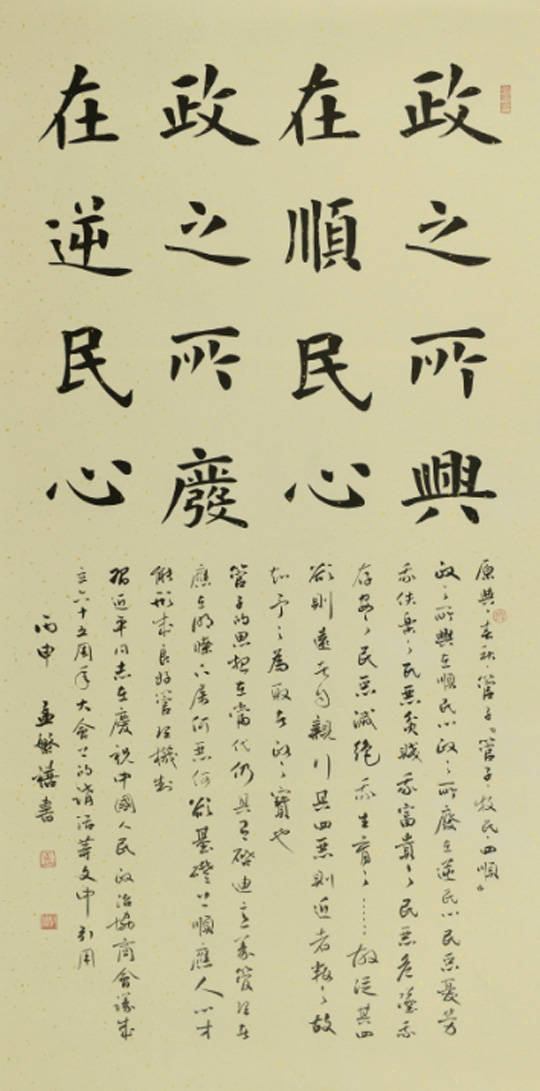 政之所興
在順民心
政之所廢
在逆民心
原典：春秋·管子《管子·牧民·四順》
政之所興在順民心政之所廢在逆民心民惡憂勞
我佚樂之民惡貧賤我富貴之民惡危墜我
存安之民惡滅絕我生育之……故從其四
欲則遠者自親行其四惡則近者叛之故
知予之為取者政之寶也
管子的思想在當代仍具有啓迪意義管理者
應在明瞭下屬何惡何欲基礎上順應人心才
能形成良好管理機制
習近平同志在慶祝中國人民政治協商會議成
立六十五周年大會上的講話等文中引用
丙申 孟繁禧書